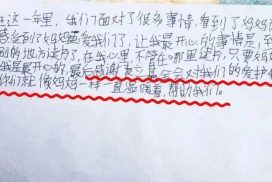 这一年里，我们面对了很多事情，看到了妈妈
感受到了妈妈更爱我们了，让我最开心的事情是，至
别的地方读书了，在我心里，不管在哪里读书，只要妈妈
我是最开心的，最后感谢 会对我们的爱护和
你们就像妈妈一样一直温暖着，帮助我们。